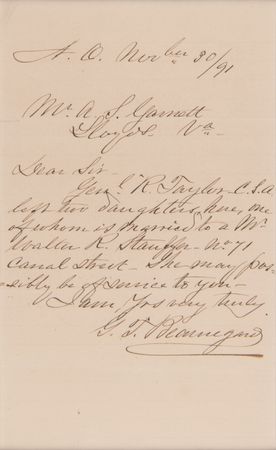 N. O. Novber 30/91
Mr. A. S. Garnett
Lloyds Va
Dear Sir
Genl. R. Taylor C.S.A
left two daughters here, one
of whom is married to a Mr
Walter R. Stauffer No 71
Canal Street. She may pos-
sibly be of service to you
I am, Yrs very truly
G. T. Beauregard